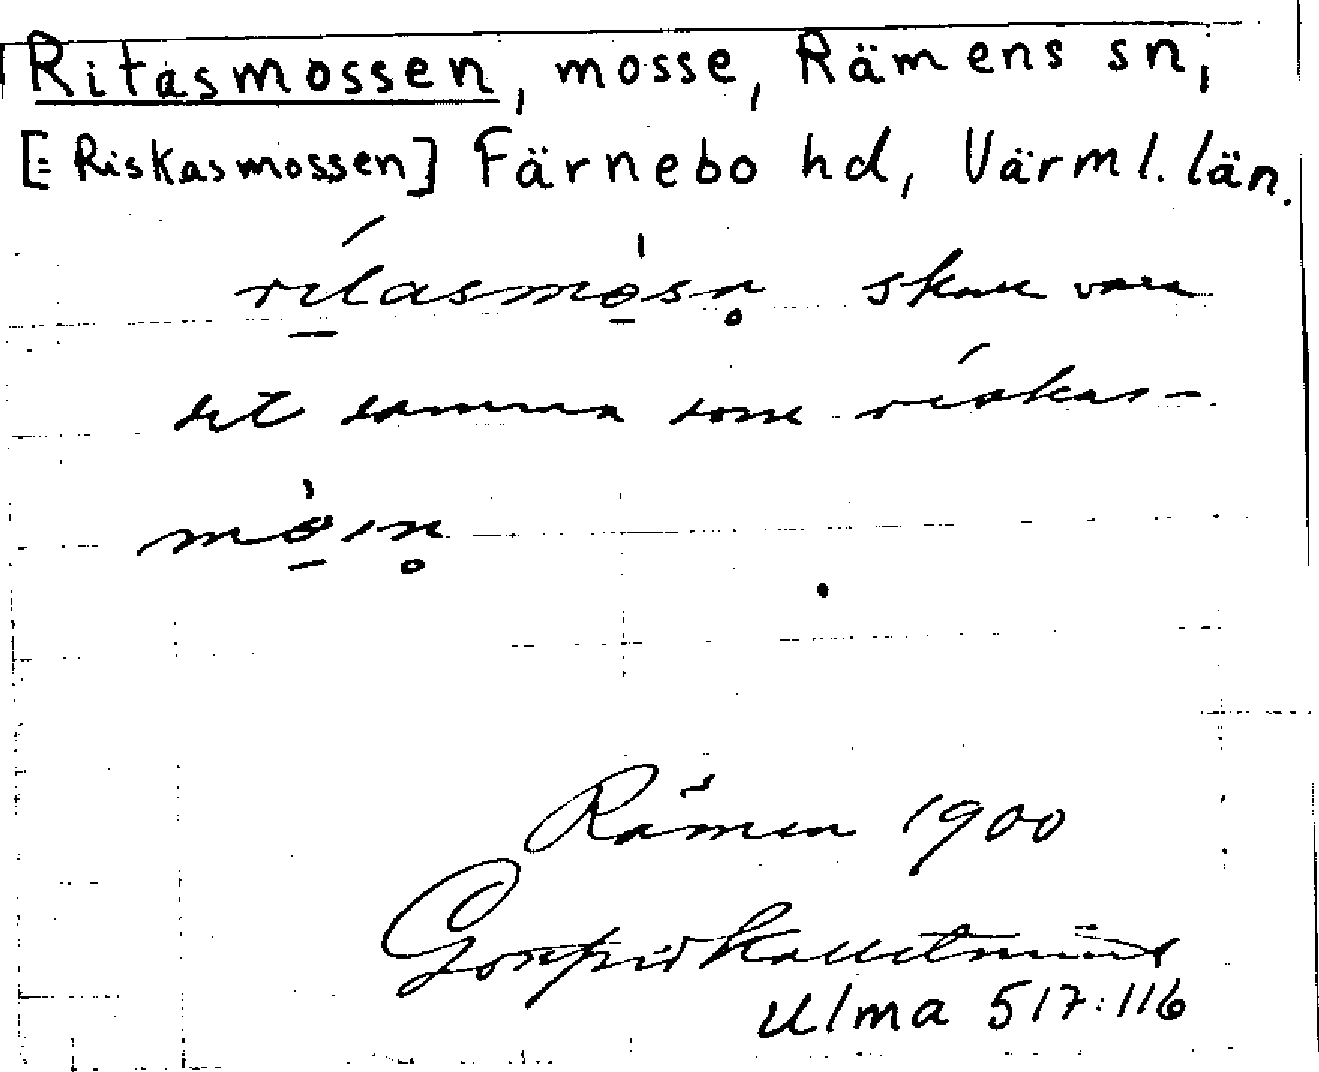 Ritasmossen, mosse, Rämens sn,
[= Riskasmossen] Färnebo hd, Värml. län.
ritasmo̱sn̥ skall vara
det samma som riskas-
mo̱sn̥
Rämen 1900
Gottfrid Kallstenius
Ulma 517:116